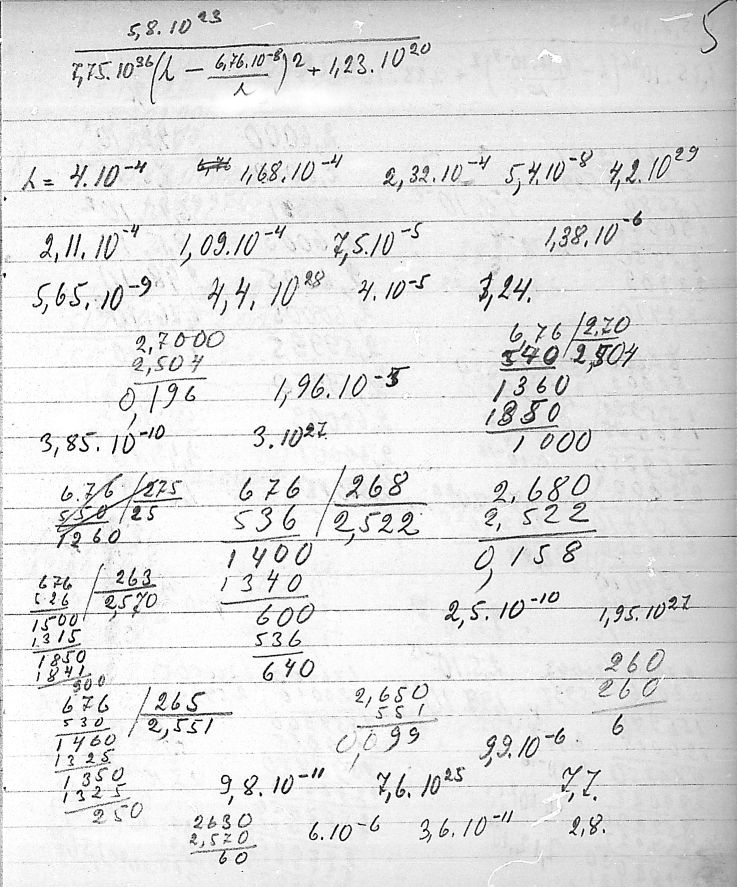 5
5,8.10²³
7,75.10³⁶(λ − 6,76.10⁻⁸/λ)² + 1,23.10²⁰
λ = 4.10⁻⁴ 1,68.10⁻⁴ 2,32.10⁻⁴ 5,4.10⁻⁸ 4,2.10²⁹
2,11.10⁻⁴ 1,09.10⁻⁴ 7,5.10⁻⁵ 1,38.10⁻⁶
5,65.10⁻⁹ 4,4.10²⁸ 4.10⁻⁵ 3,24.
2,7000
2,504
0,196
1,96.10⁻⁵
6,76 2,70
540 2,504
1360
1350
1000
3,85.10⁻¹⁰ 3.10²⁷
6.76 275
550 25
1260
676 268
536 2,522
1400
1340
600
536
640
2,680
2,522
0,158
676 263
526 2,570
1500
1315
1850
1841
900
2,5.10⁻¹⁰ 1,95.10²⁷
260
260
6
676 265
530 2,551
1460
1325
1350
1325
250
2,650
551
0,099
9,9.10⁻⁶
9,8.10⁻¹¹ 7,6.10²⁵ 7,7.
2630
2,570
60
6.10⁻⁶ 3,6.10⁻¹¹ 2,8.